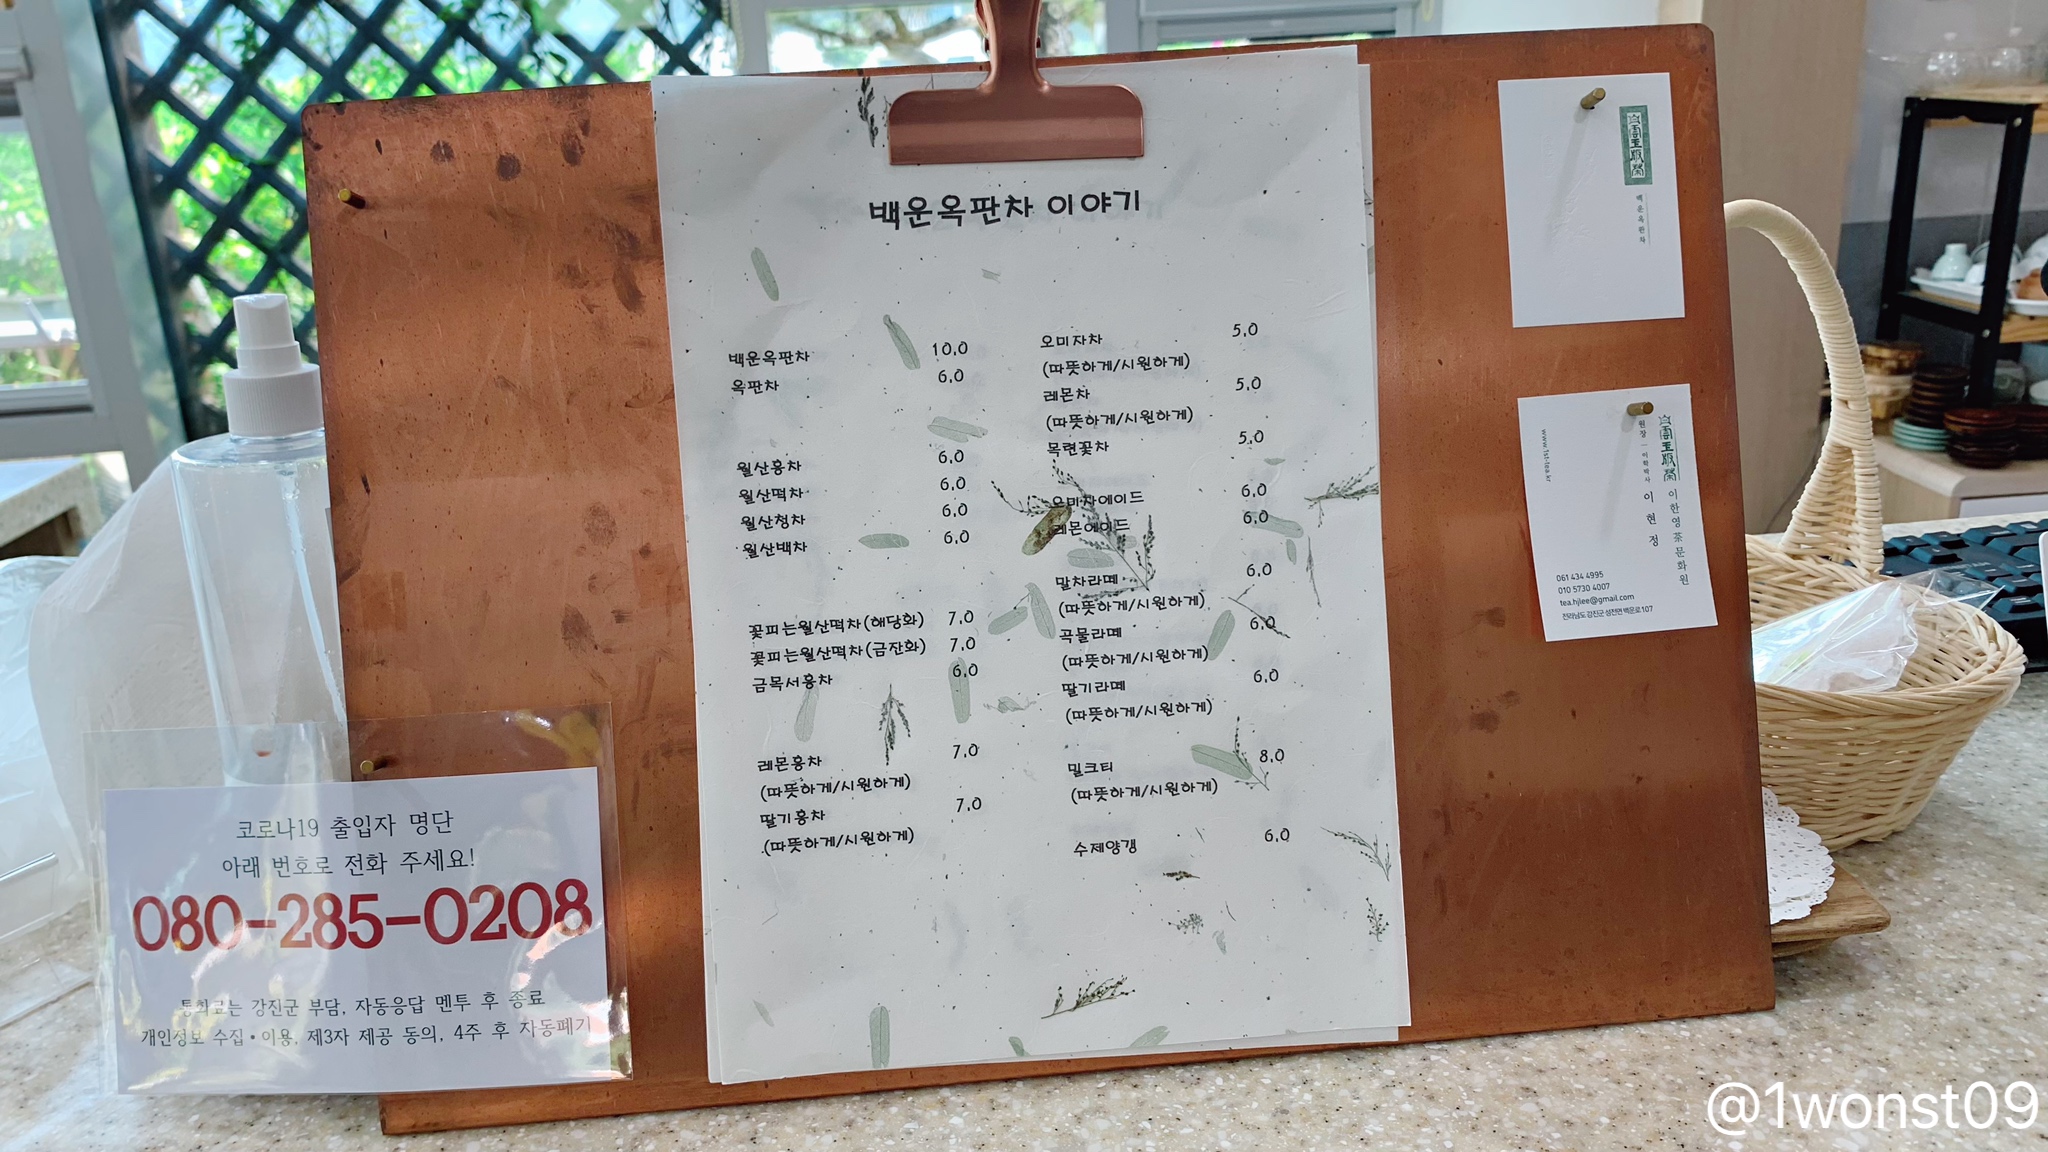 백운옥판차 이야기
백운옥판차 10.0
옥판차 6.0
월산홍차 6.0
월산떡차 6.0
월산청차 6.0
월산백차 6.0
꽃피는월산떡차(해당화) 7.0
꽃피는월산떡차(금잔화) 7.0
금목서홍차 6.0
레몬홍차 7.0
(따뜻하게/시원하게)
딸기홍차 7.0
(따뜻하게/시원하게)
오미자차 5.0
(따뜻하게/시원하게)
레몬차 5.0
(따뜻하게/시원하게)
목련꽃차 5.0
오미자에이드 6.0
레몬에이드 6.0
말차라떼 6.0
(따뜻하게/시원하게)
곡물라떼 6.0
(따뜻하게/시원하게)
딸기라떼 6.0
(따뜻하게/시원하게)
밀크티 8.0
(따뜻하게/시원하게)
수제양갱 6.0
코로나19 출입자 명단
아래 번호로 전화 주세요!
080-285-0208
통화료는 강진군 부담, 자동응답 멘투 후 종료
개인정보 수집•이용, 제3자 제공 동의, 4주 후 자동폐기
이한영茶문화원
원장 이학박사 이현정
061 434 4995
010 5730 4007
tea.hjlee@gmail.com
전라남도 강진군 성전면 백운로 107
@1wonst09